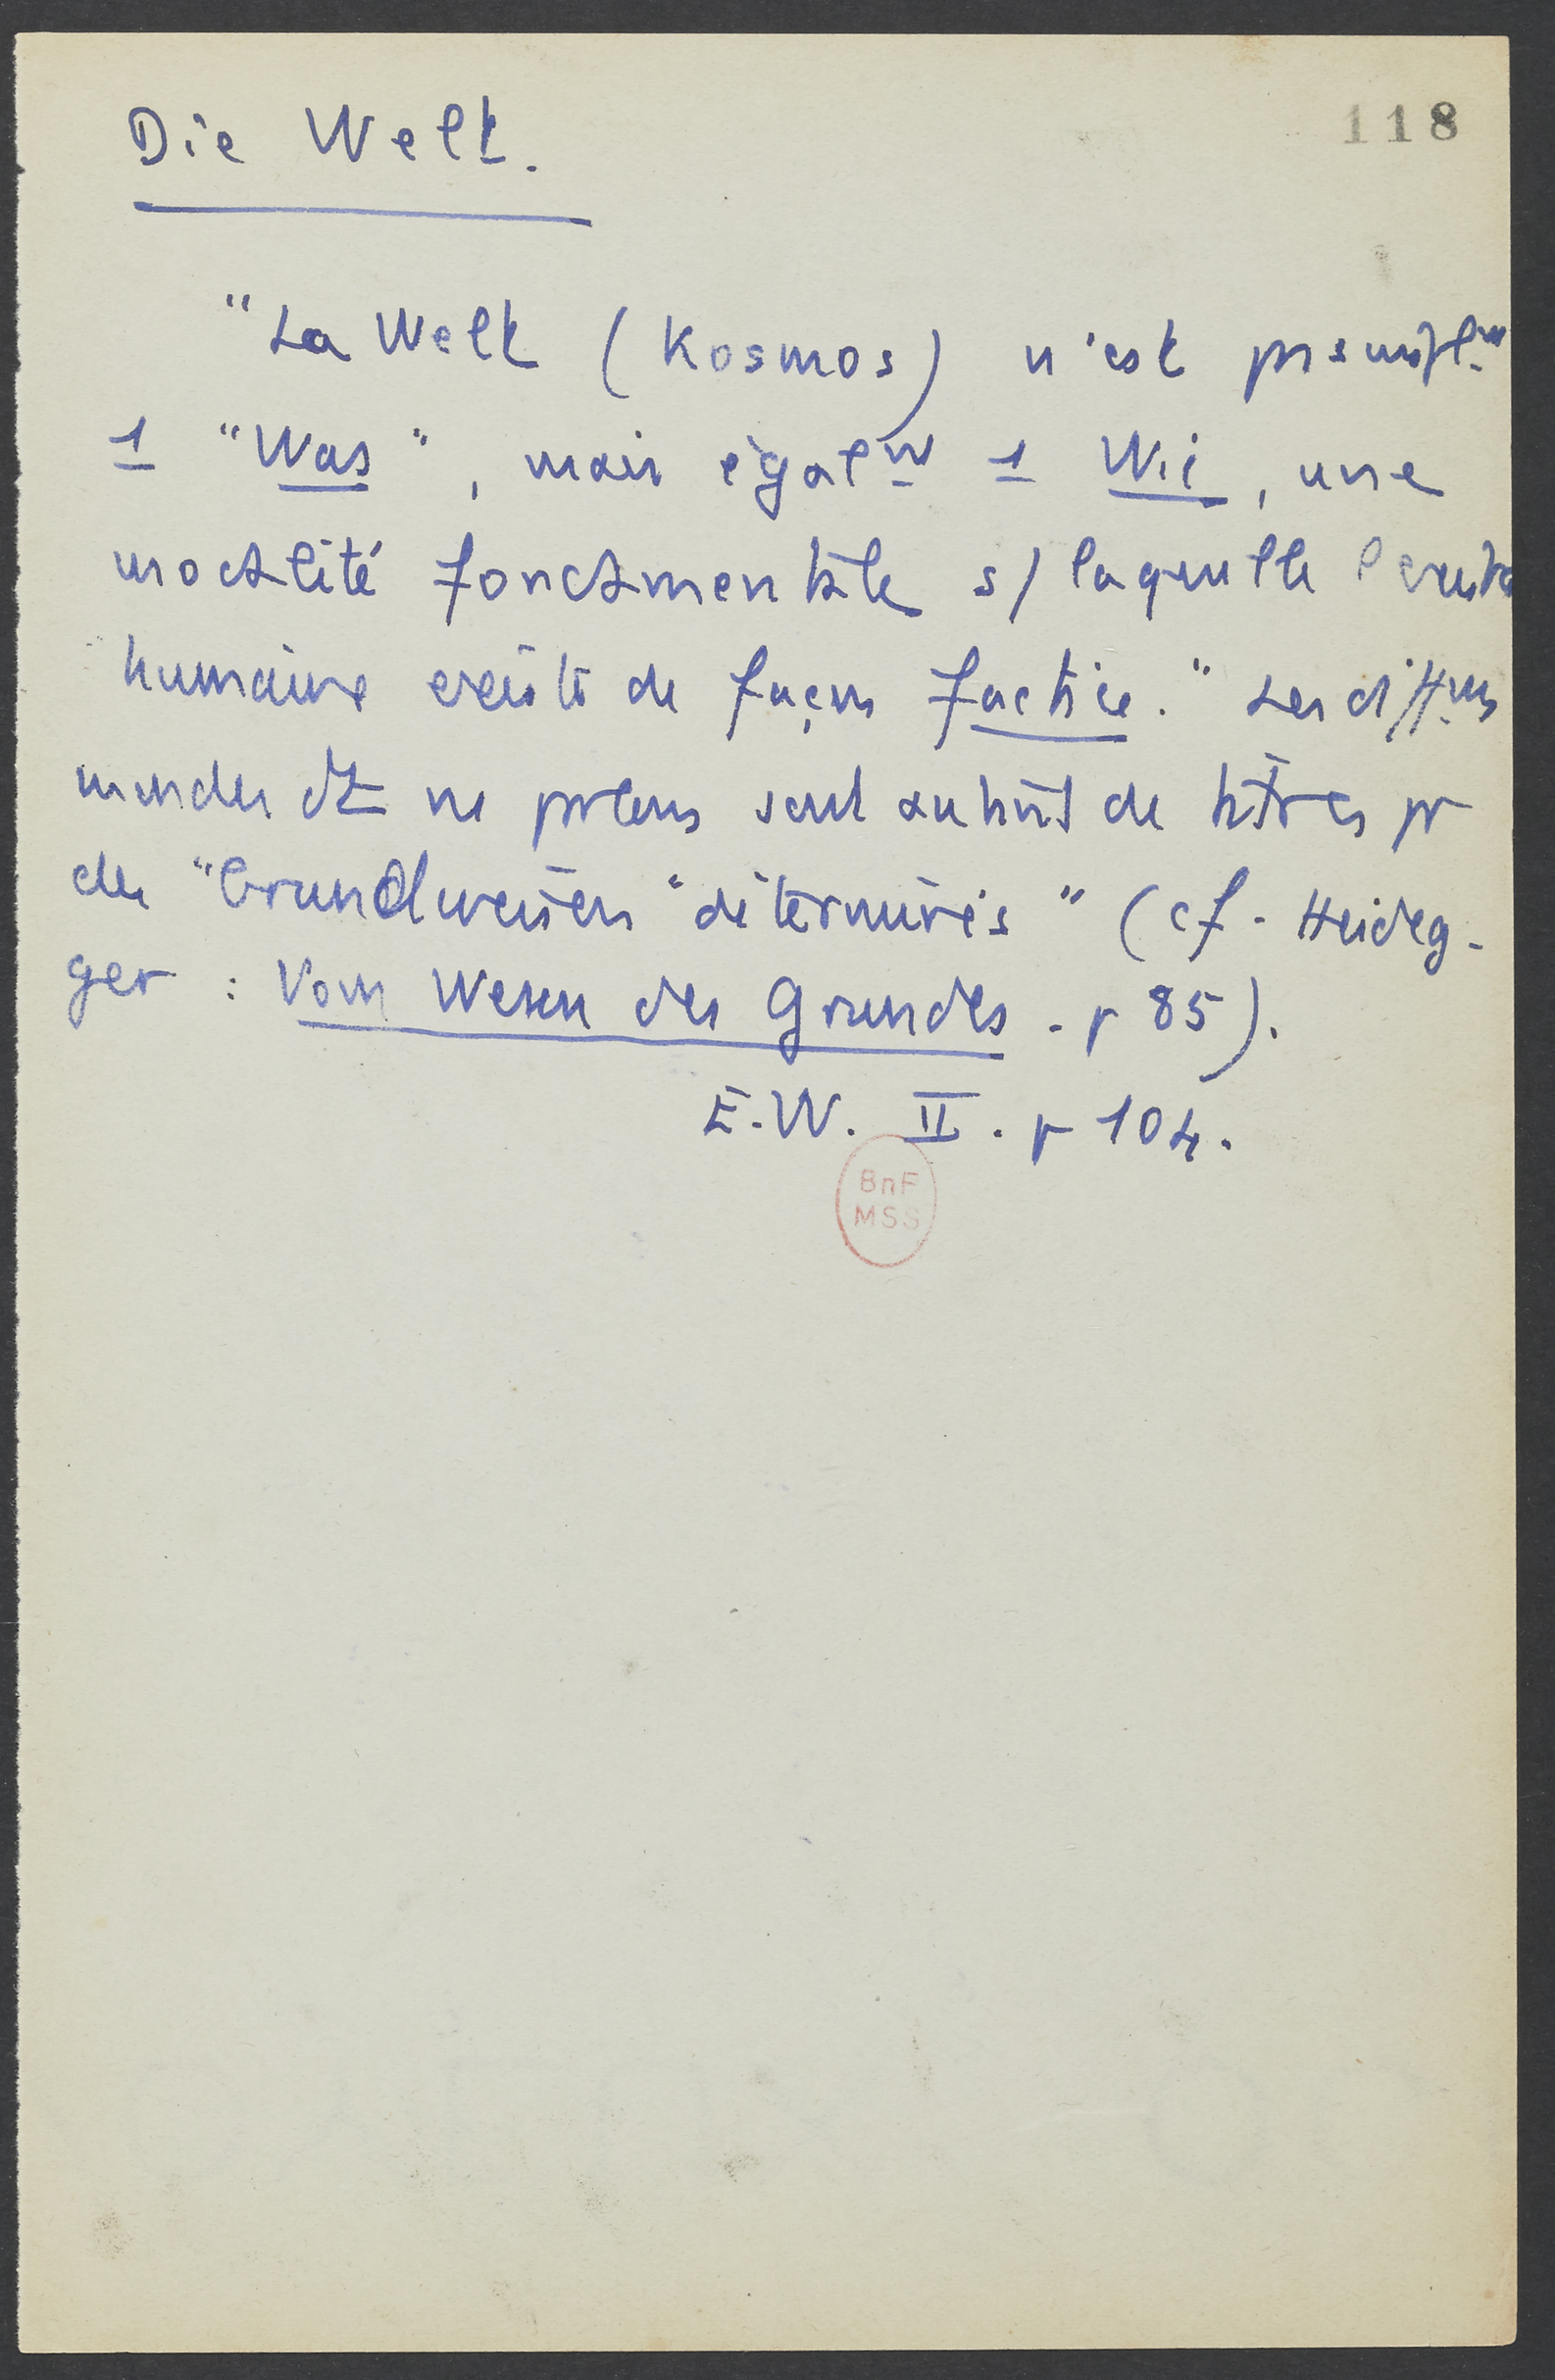 118
Die Welt.
"La Welt (Kosmos) n'est pas simplt
1 "Was", mais égalt 1 Wie, une
modalité fondamentale s/ laquelle l'exist
humaine existe de façon factice." Les diffts
mondes dt ns parlons sont autant de titres pr
des "Grundweisen" déterminés" (cf. Heideg-
ger : Vom Wesen des Grundes . p 85).
E.W. II . p 104.
BnF
MSS